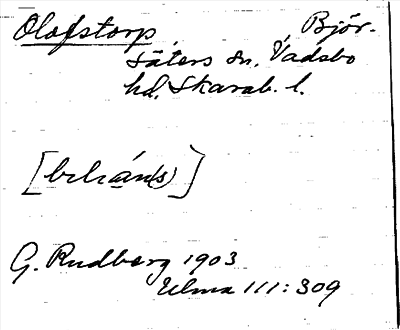 Olofstorp. Björ-
säters sn. Vadsbo
hd. Skarab. l.
G. Rudberg 1903
Ulma 111:309